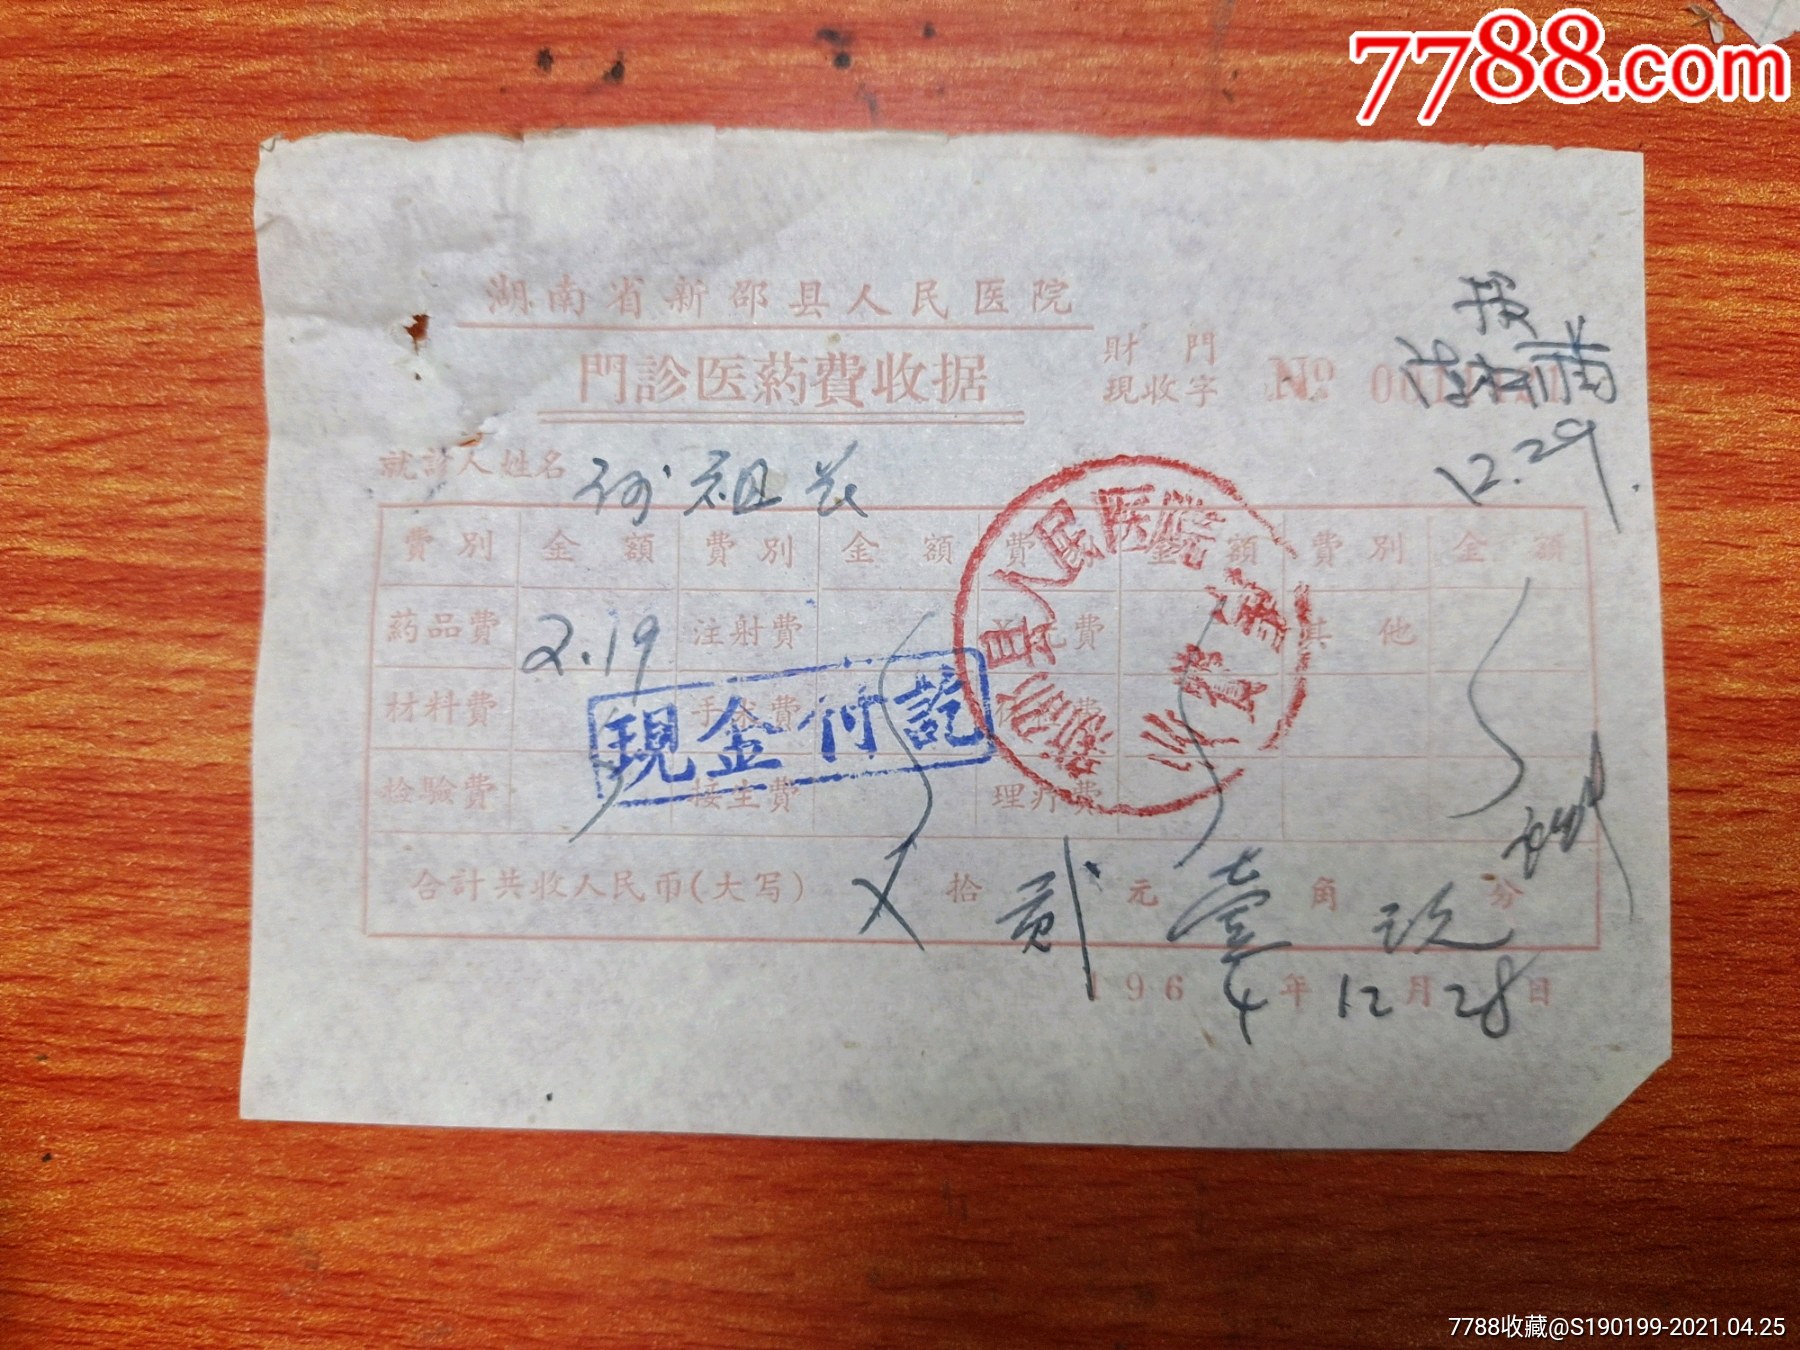 7788.com
湖南省新邵县人民医院
門診医药費收据
財門
現收字 № 00
12.29.
就診人姓名 何祖
費別 金額 費別 金額 費 金額 費別 金額
葯品費 2.19 注射費 費 其他
材料費 手术費 費
检驗費 接生費 理疗費
現金付訖
新邵县人民医院
合計共收人民币(大写) 拾 贰 元 壹 角 玖 分
1964年12月28日
7788收藏@S190199-2021.04.25